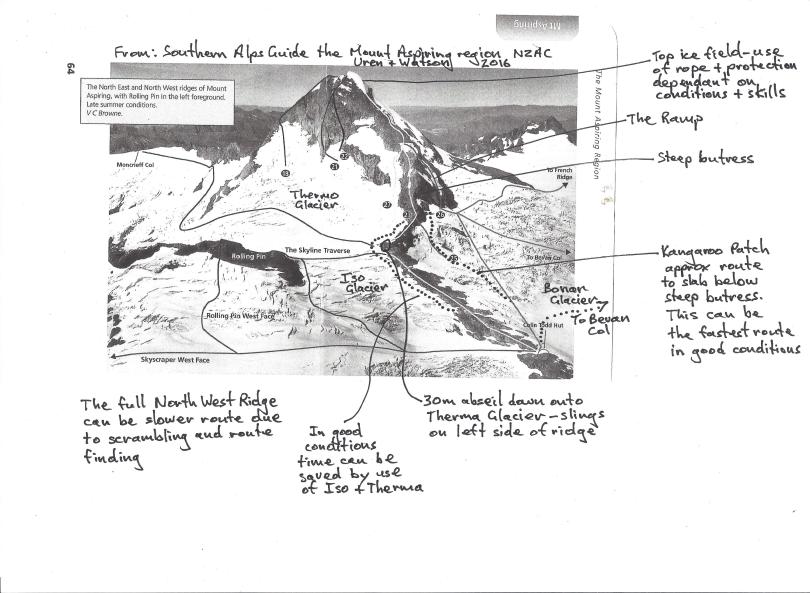 Mt Aspiring
From: Southern Alps Guide the Mount Aspiring region NZAC
Uren + Watson 2016
64
The North East and North West ridges of Mount
Aspiring, with Rolling Pin in the left foreground.
Late summer conditions.
V C Browne.
The Mount Aspiring Region
Top ice field-use
of rope + protection
dependant on
conditions + skills
The Ramp
Steep butress
Moncrieff Col
To French
Ridge
18
21
22
Thermo
Glacier
27
26
The Skyline Traverse
Rolling Pin
To Bevan Col
Iso
Glacier
Kangaroo Patch
approx route
to slab below
steep butress.
This can be
the fastest route
in good conditions
Bonar
Glacier
To Bevan
Col
Rolling Pin West Face
Colin Todd Hut
Skyscraper West Face
The full North West Ridge
can be slower route due
to scrambling and route
finding
In good
conditions
time can be
saved by use
of Iso + Therma
30m abseil down onto
Therma Glacier - slings
on left side of ridge